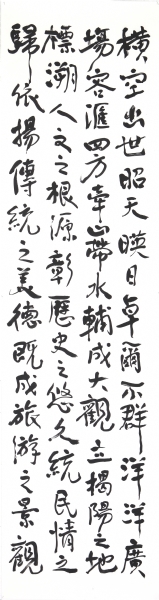 橫空出世昭天暎日卓爾不群洋洋廣
場容滙四方牽山帶水輔成大觀立揭陽之地
標溯人文之根源彰歷史之悠久統民情之
歸依揚傳統之美德既成旅游之景觀